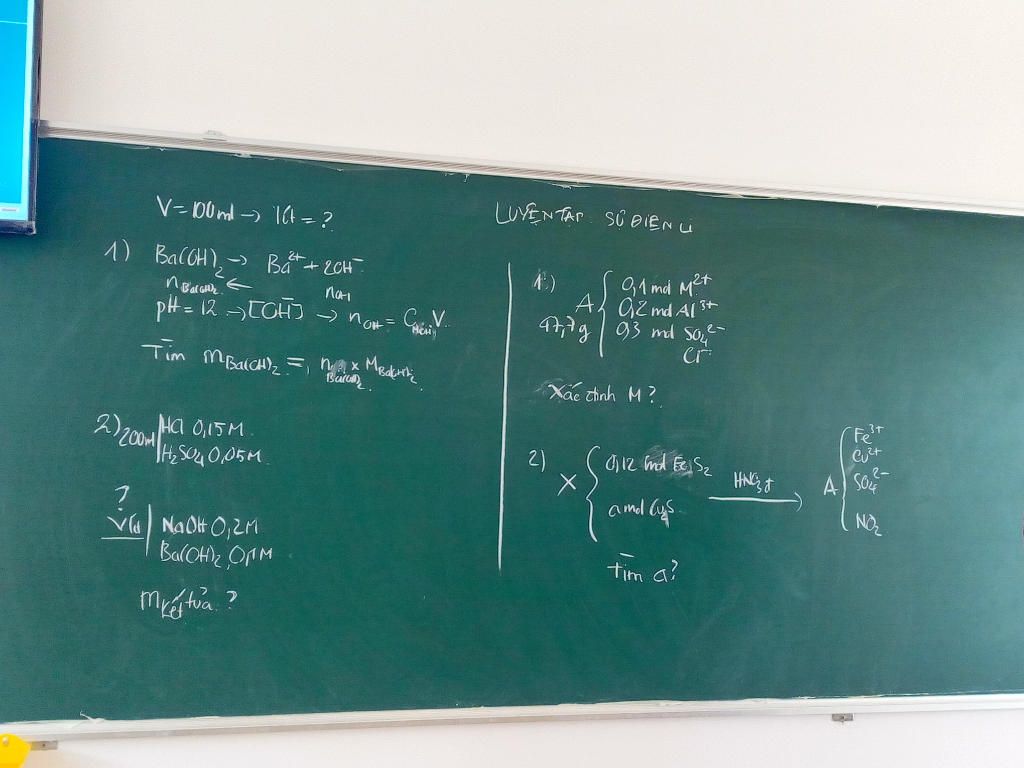 V = 100 ml → lít = ?
1) Ba(OH)₂ → Ba²⁺ + 2OH⁻
n Ba(OH)₂ ← n OH
pH = 12 → [OH⁻] → n OH = C V
Tìm m Ba(OH)₂ = n Ba(OH)₂ × M Ba(OH)₂
2) 200ml HCl 0,15M
H₂SO₄ 0,05M
?
V lít NaOH 0,2M
Ba(OH)₂ 0,1M
m kết tủa ?
LUYỆN TẬP SỰ ĐIỆN LI
1.) A 0,1 mol M²⁺
0,2 mol Al³⁺
47,7g 0,3 mol SO₄²⁻
Cl⁻
Xác định M ?
2) X 0,12 mol FeS₂
a mol Cu₂S
HNO₃đ →
A Fe³⁺
Cu²⁺
SO₄²⁻
NO₂
Tìm a?